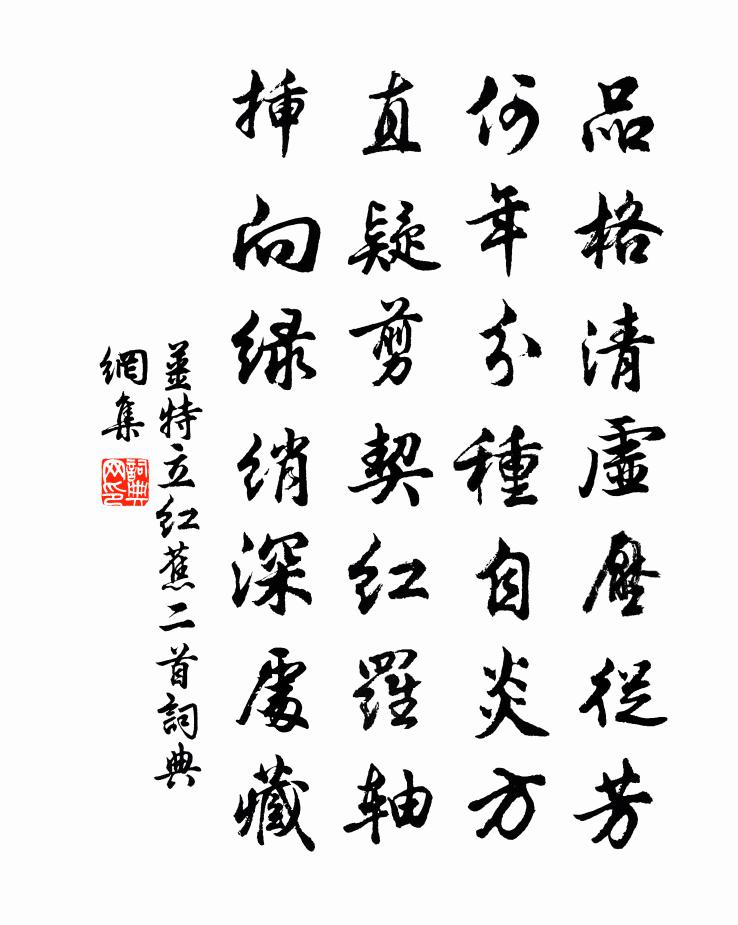 品格清虛壓從芳
何年分種自炎方
直疑剪契紅羅軸
挿向緑綃深處藏
薑特立紅蕉二首詞典
網集
詞典網印